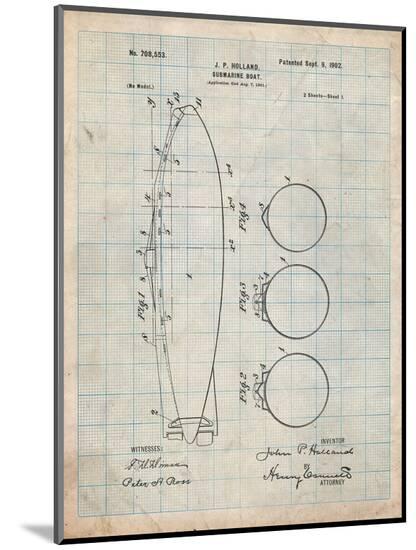 No. 708,553.
Patented Sept. 9, 1902.
J. P. HOLLAND.
SUBMARINE BOAT.
(Application filed Aug. 7, 1901.)
(No Model.)
2 Sheets—Sheet 1.
Fig. 1
Fig. 4
Fig. 3
Fig. 2
WITNESSES:
Peter A Ross
INVENTOR
John P. Holland
Henry Connett
ATTORNEY